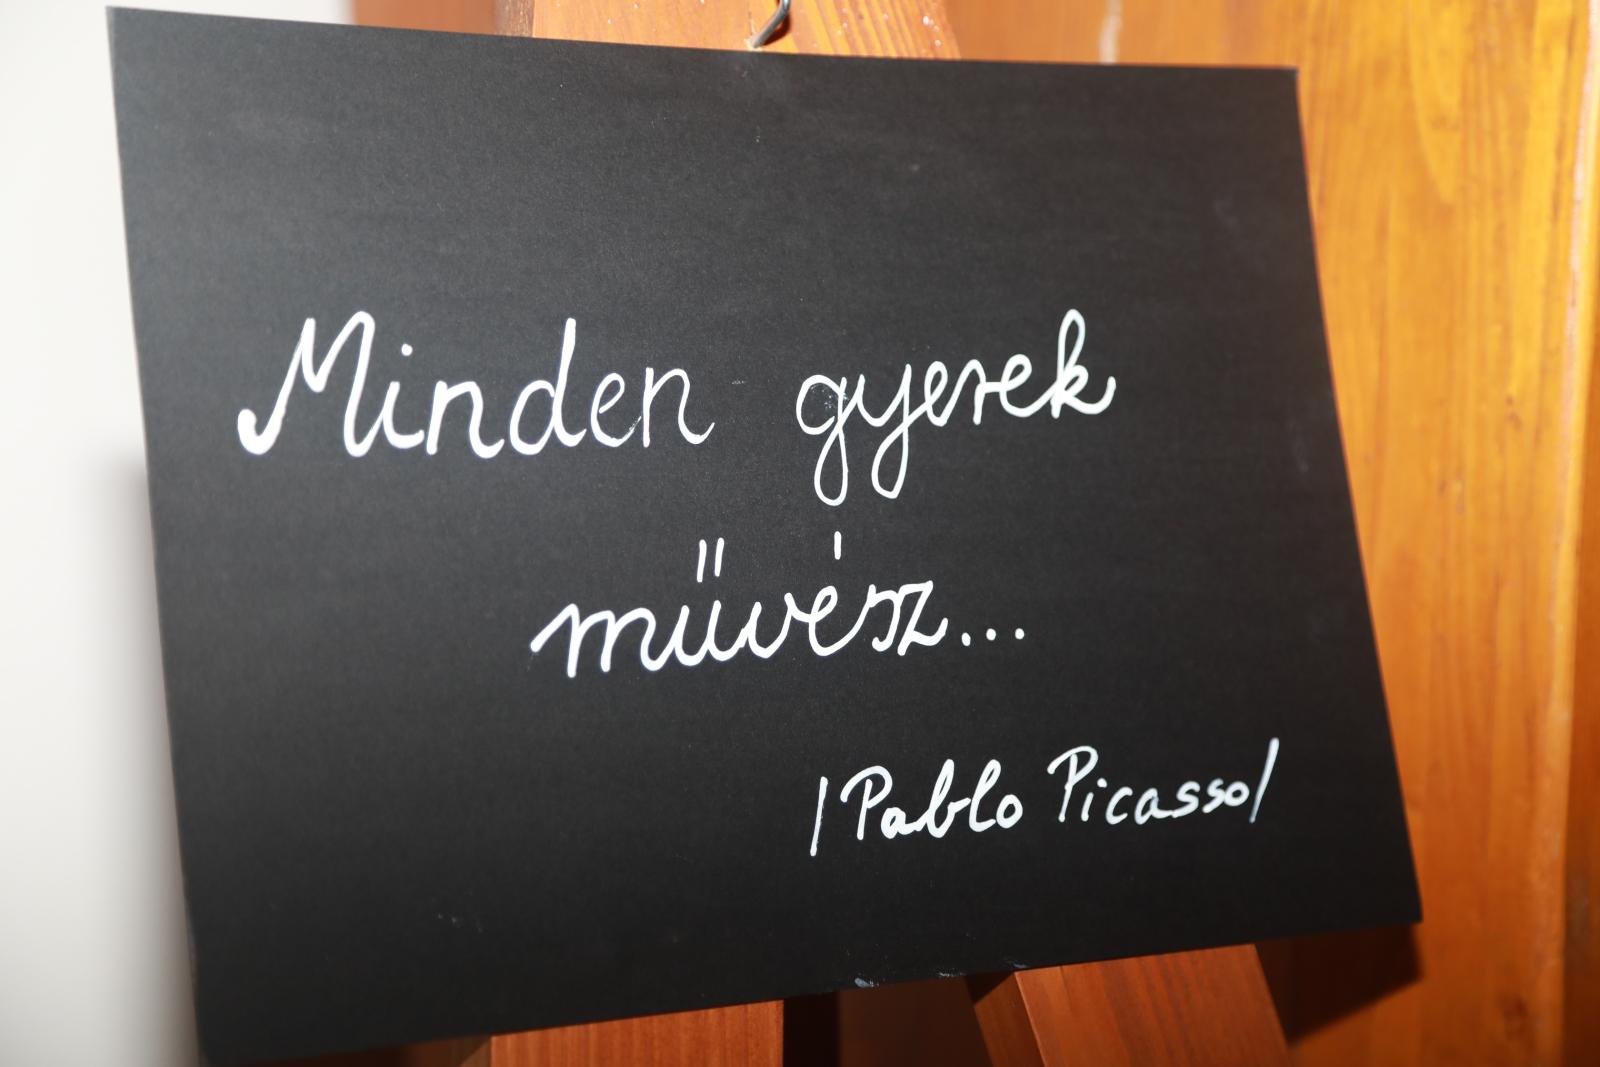 Minden gyerek
művész...
/Pablo Picasso/